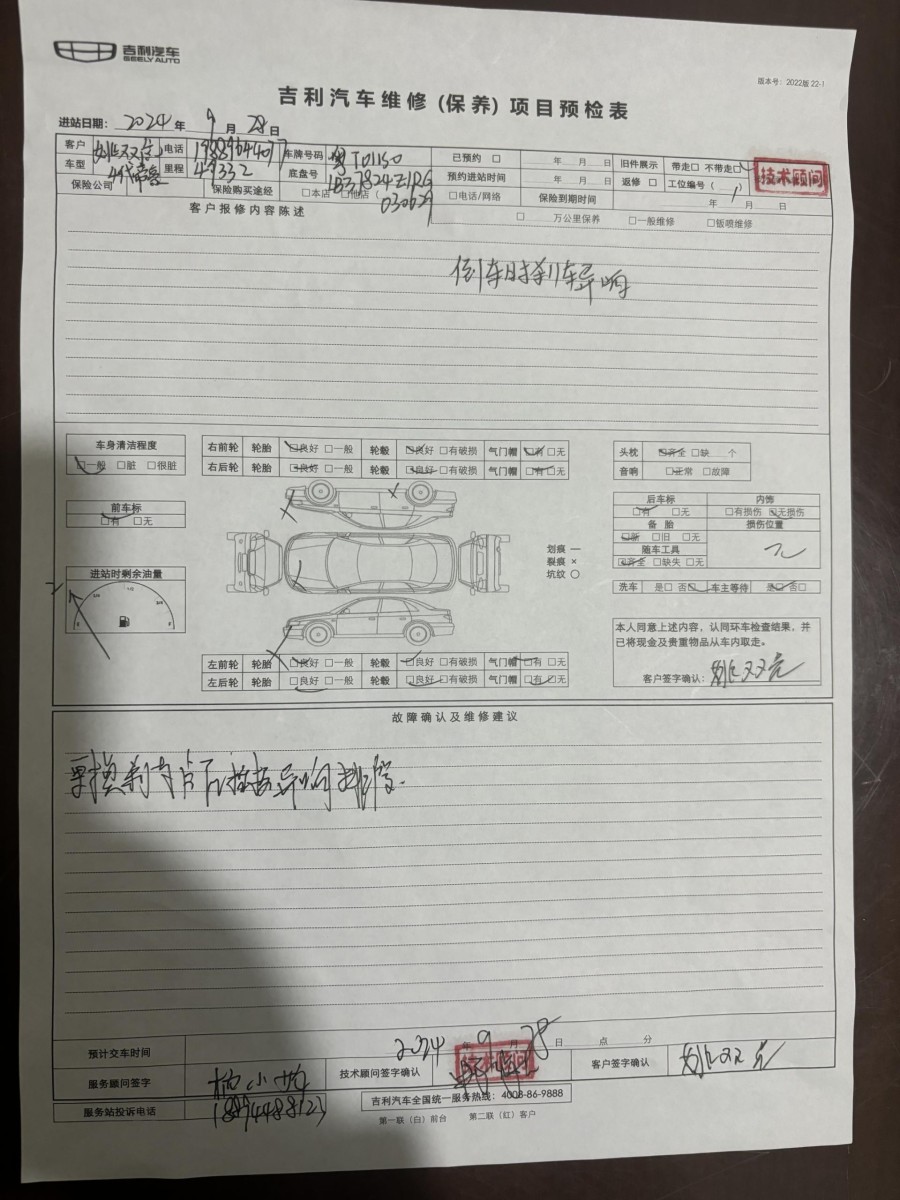 吉利汽车
GEELY AUTO
版本号：2022版 22-1
吉利汽车维修（保养）项目预检表
进站日期：2024年 9月 28日
客户 电话 车牌号码 粤T01150 已预约 □ 年 月 日 旧件展示 带走□ 不带走□
技术顾问
车型 4代帝豪 里程 49332 底盘号 预约进站时间 年 月 日 返修 □ 工位编号（ 1 ）
保险公司 保险购买途经 □本店 □他店（ 030629 □电话/网络 保险到期时间 年 月 日
客户报修内容陈述 □ 万公里保养 □一般维修 □钣喷维修
倒车时刹车异响
车身清洁程度
□一般 □脏 □很脏
右前轮 轮胎 □良好 □一般 轮毂 □良好 □有破损 气门帽 □有 □无
右后轮 轮胎 □良好 □一般 轮毂 □良好 □有破损 气门帽 □有 □无
头枕 □齐全 □缺 个
音响 □正常 □故障
前车标
□有 □无
后车标 内饰
□有 □无 □有损伤 □无损伤
备 胎 损伤位置
□新 □旧 □无 无
随车工具
□齐全 □缺失 □无
划痕 —
裂痕 ×
坑纹 ○
进站时剩余油量
洗车 是□ 否□ 车主等待 是□ 否□
本人同意上述内容，认同环车检查结果，并
已将现金及贵重物品从车内取走。
客户签字确认：
左前轮 轮胎 □良好 □一般 轮毂 □良好 □有破损 气门帽 □有 □无
左后轮 轮胎 □良好 □一般 轮毂 □良好 □有破损 气门帽 □有 □无
故障确认及维修建议
异响排除.
预计交车时间 2024年 9月 28日 点 分
服务顾问签字 技术顾问签字确认 技术顾问 客户签字确认
服务站投诉电话
吉利汽车全国统一服务热线：4008-86-9888
第一联（白）前台 第二联（红）客户